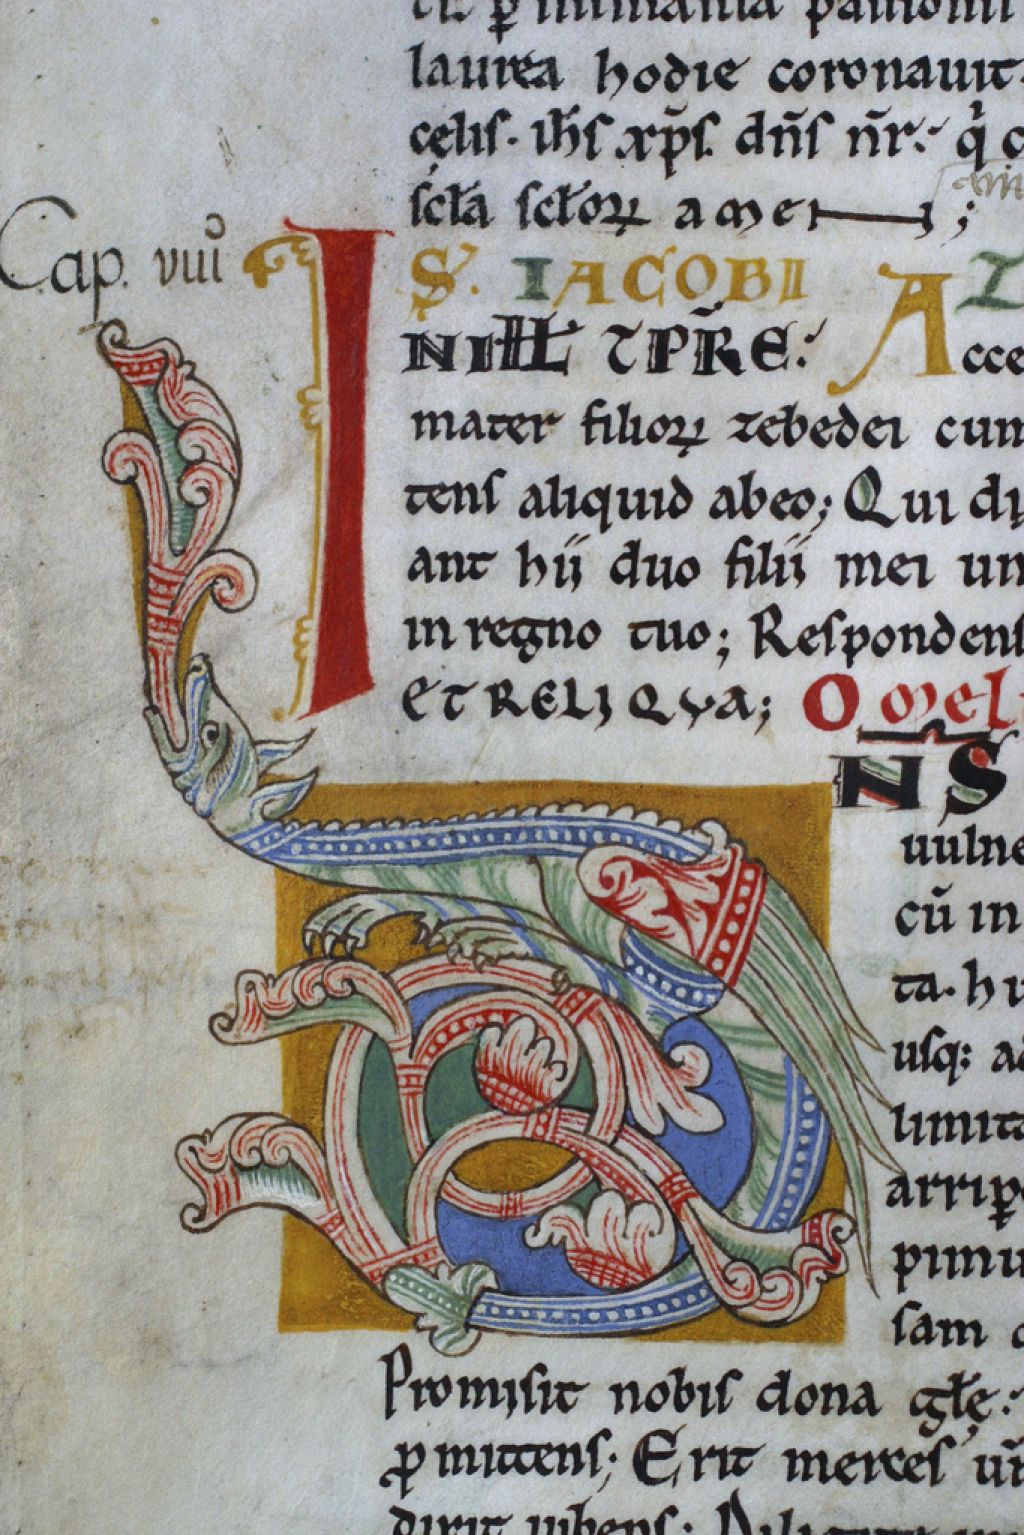 laurea hodie coronauit.
cęlis. ih̄s xp̄s. dn̄s nr̄.
sc̄la sc̄lorꝝ amen;
Cap. viiii
IS. IACOBI
NIHIL
mater filiorꝝ zebedei cum
tens aliquid ab eo; Qui di
ant hij duo filii mei un
in regno tuo; Respondens
ET RELIQVA; Omel
NS
uulne
cū in
ta. hu
usq:
limita
arrip
pimu
sam
Promisit nobis dona gl̄ę:
ꝓmittens; Erit merces ur̄